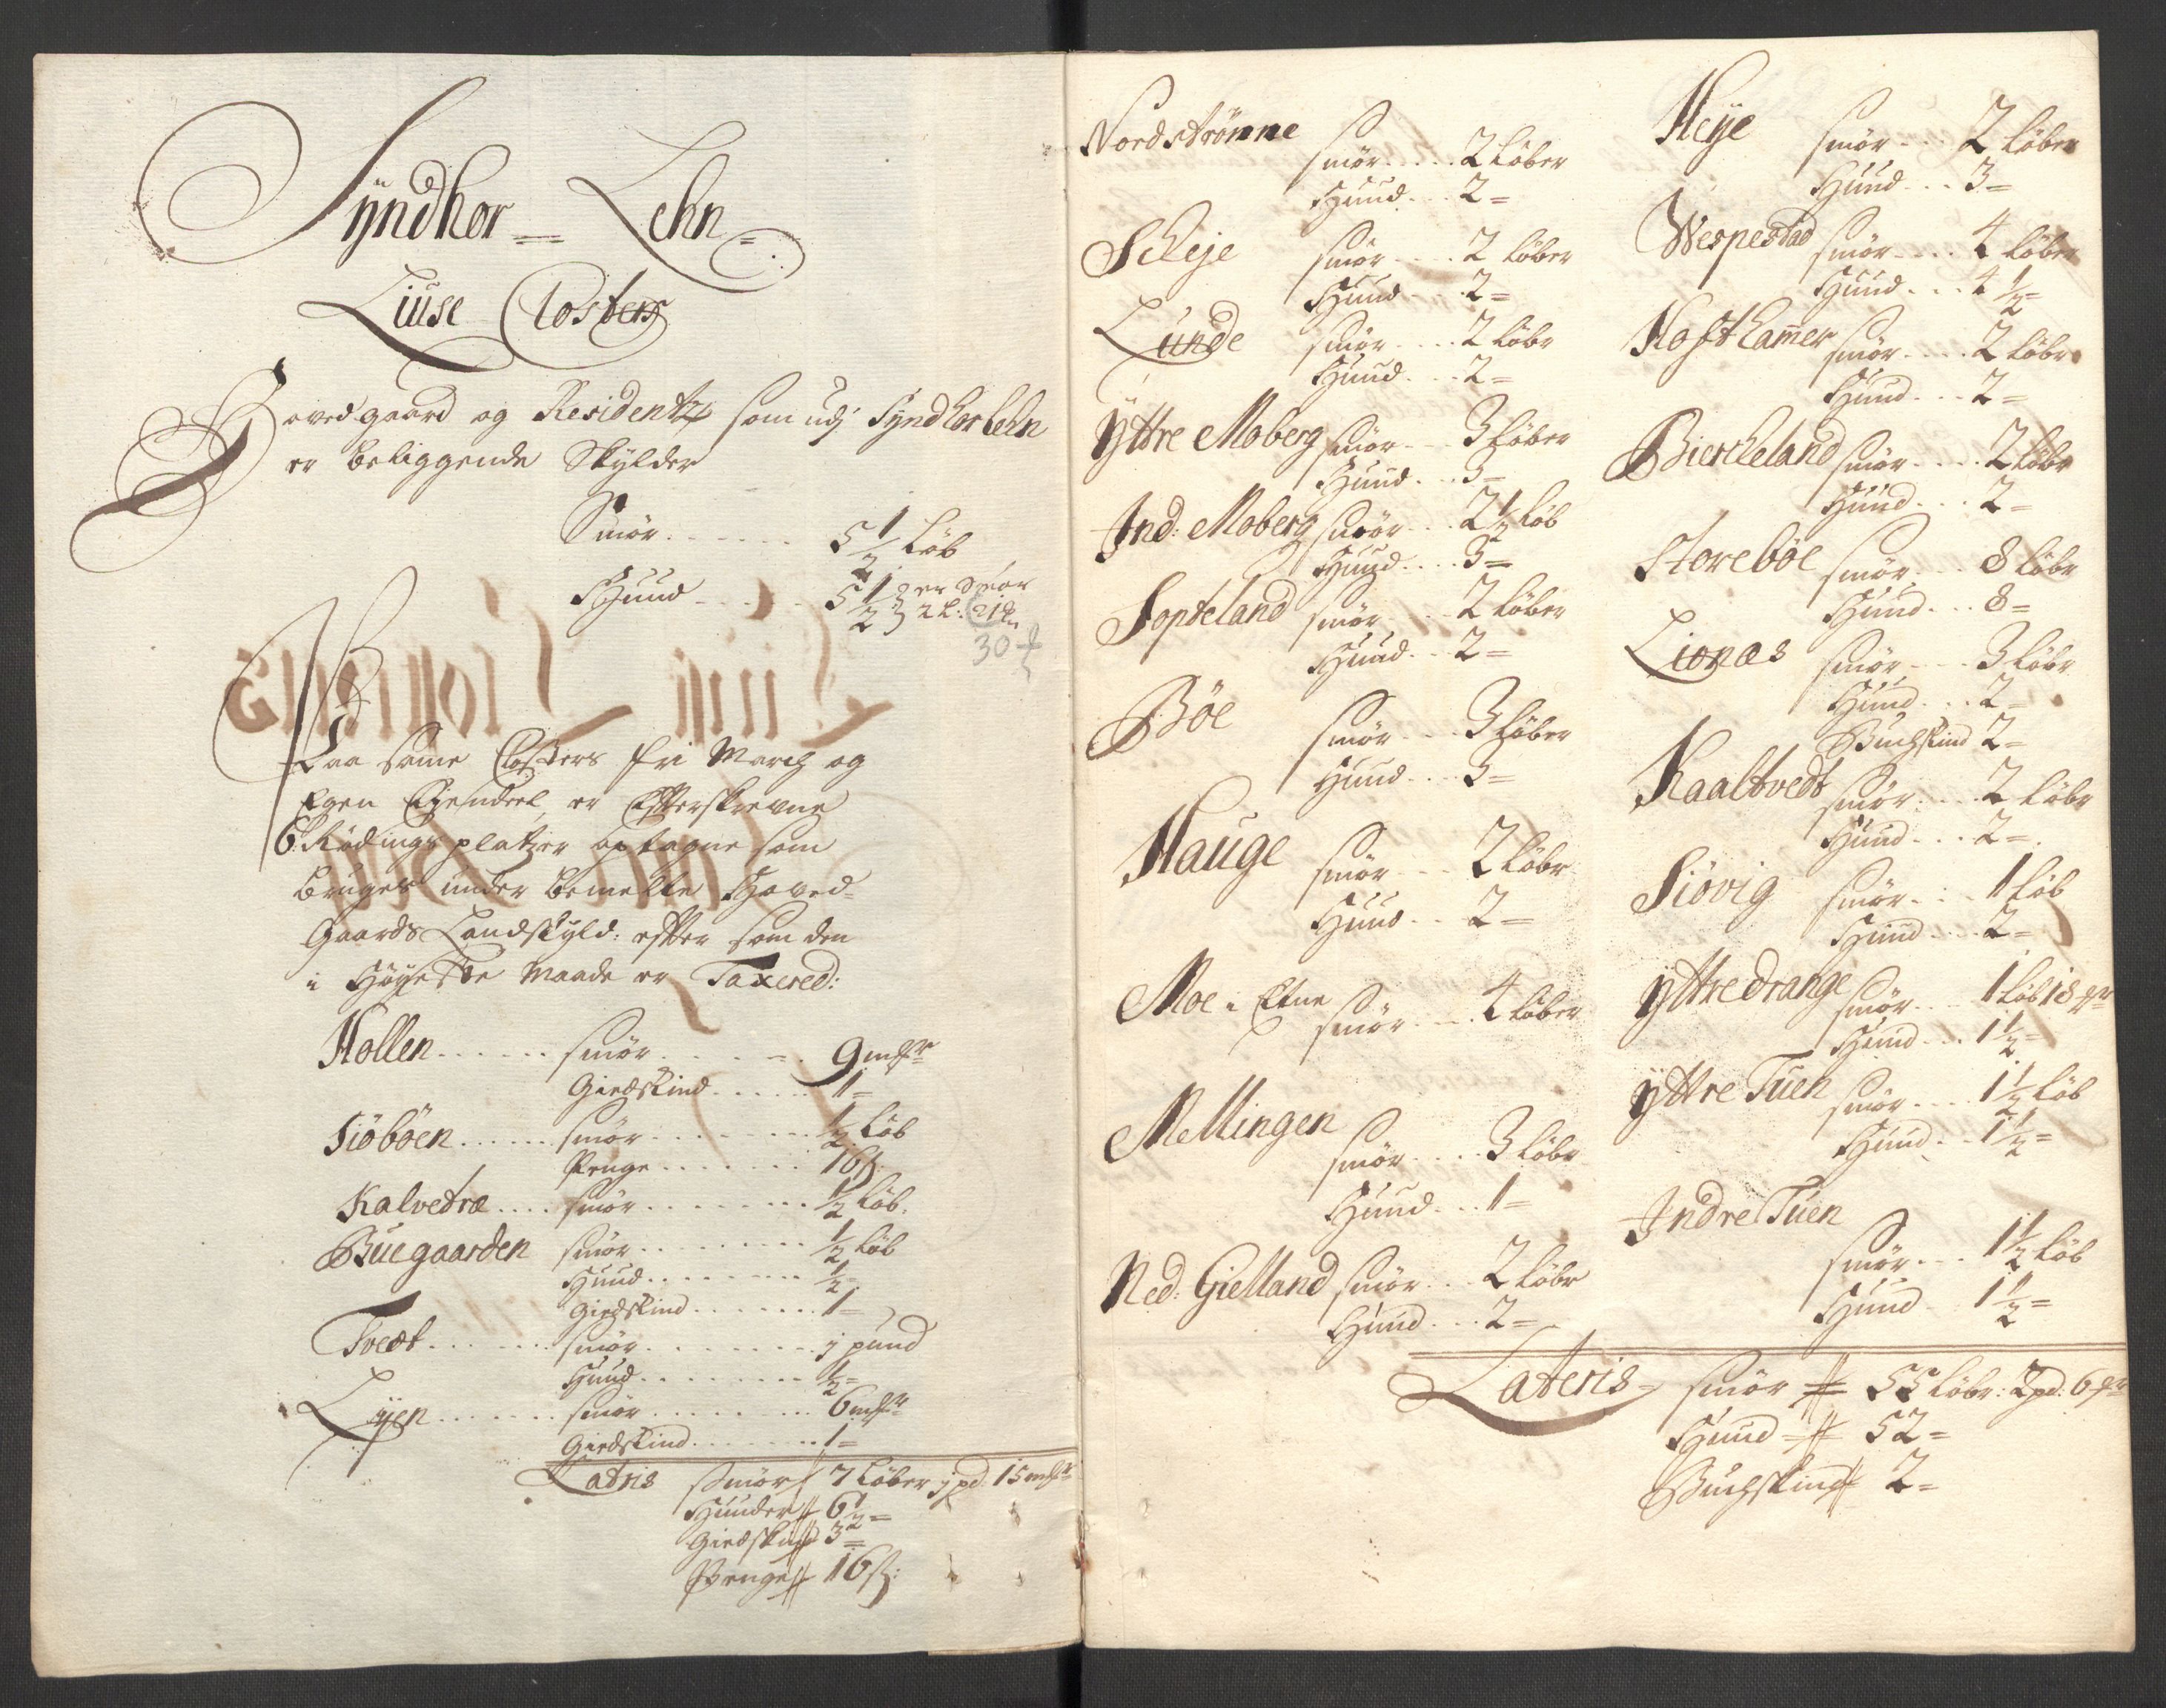 Syndhor Lehn
Liuse Closters
Hovedgaard og Residentz som udj Syndhorlehn
er beliggende Skylder
Smör ...... 5 1/2 Løb
Huud ...... 5 1/2
30
Paa samme Closters fri March og
Egen Eyendeel, er Effterskrevne
6 Rødnings platzer optagne som
bruges under bemelte Hoved-
Gaards Landskyld: effter som den
i Høyeste Maade er Taxered:
Hollen ...... smör ...... 9 mkr
Giedskind ..... 1 =
Siöböen ...... smör ....... 1/2 Løb
Penge ....... 16 s:
Kalvetræ .... smör ....... 1/2 Løb.
Buegaarden smör ....... 1/2 Løb
Huud ....... 1/2
Giedskind ....... 1 =
Tveæt ...... smör ....... j pund
Huud ....... 1/2 =
Lyen ....... smör ....... 6 mkr
Giedskind ....... 1 =
Latris Smör 7 Løber j pd. 15 mkr
Huuder 6 1/2 =
Giedskind 3 =
Penge 16 s:
Nordströnne
smör .... 2 Løber
Huud ... 2 =
Scheje smör .... 2 Løber
Huud ... 2 =
Lunde smör .... 2 Løbr
Huud ... 2 =
Yttre Moberg smör ... 3 Løber
Huud ... 3 =
Ind: Moberg smör ... 2 1/2 Løb
Huud .... 3 =
Sopteland smör ... 2 Løber
Huud ... 2 =
Böe smör ... 3 Løber
Huud ... 3 =
Hauge smör ... 2 Løbr
Huud ... 2 =
Moe i Etne smör ... 4 Løber
Mellingen
smör .... 3 Løbr
Huud ... 1 =
Ned: Gielland smör ... 2 Løbr
Huud ... 2 =
Heye smör ... 2 Løber
Huud ... 3 =
Wespestad smör .... 4 Løber
Huud ... 4 1/2 =
Hofthammer smör .... 2 Løbr
Huud ... 2 =
Bierckeland smör .... 2 Løbr
Huud ... 2 =
Storeböe smör ... 8 Løbr
Huud ... 8 =
Lionæs smör ... 3 Løbr
Huud ... 2 =
Buchskind 2 =
Kaaltvedt smör .... 2 Løbr
Huud ... 2 =
Siövig smör ... 1 Løb
Huud ... 2 =
Yttre Drange smör ... 1 Løb 18 mkr
Huud ... 1 1/2 =
Yttre Tuen smör ... 1 1/2 Løb
Huud ... 1 1/2 =
Indre Tuen
smör ... 1 1/2 Løb
Huud 1 1/2 =
Lateris smör 55 Løbr: 2 pd: 6 mkr
Huud 52 =
Buchskind 2 =